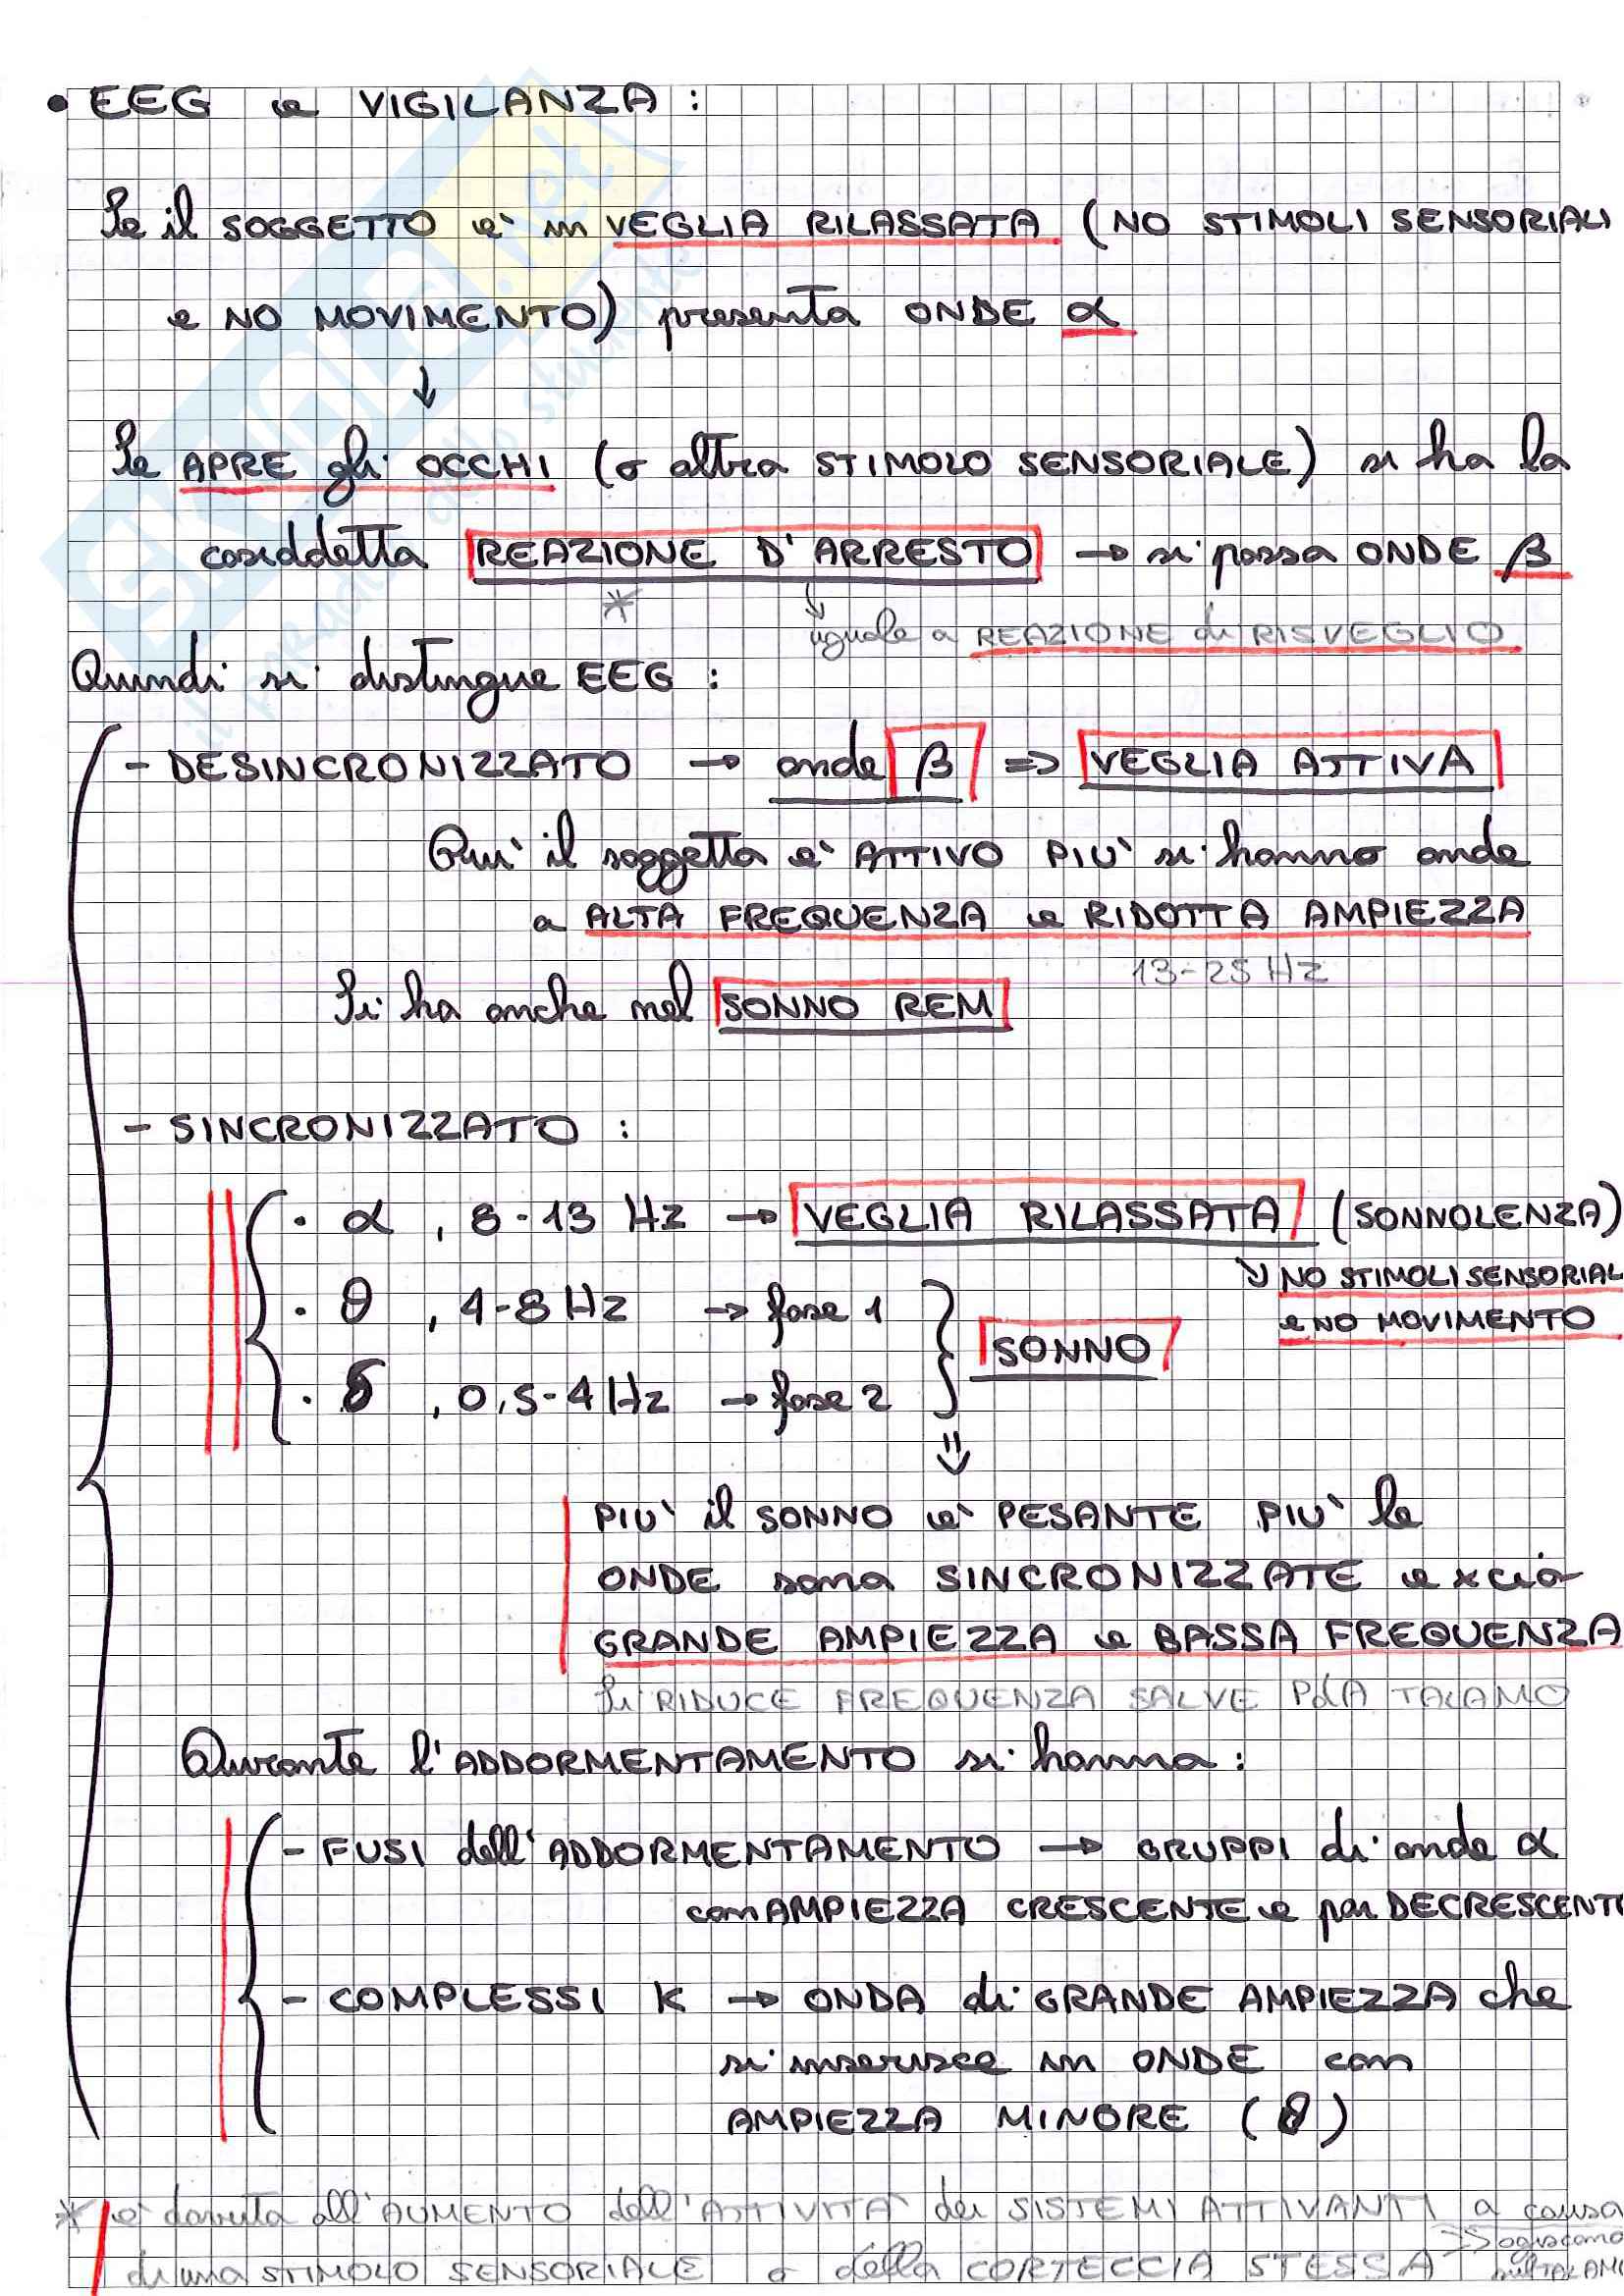 • EEG e VIGILANZA :
Se il SOGGETTO è in VEGLIA RILASSATA (NO STIMOLI SENSORIALI
e NO MOVIMENTO) presenta ONDE α
↓
Se APRE gli OCCHI (o altro STIMOLO SENSORIALE) si ha la
cosiddetta REAZIONE D'ARRESTO → si passa ONDE β
* ↓
uguale a REAZIONE di RISVEGLIO
Quindi si distingue EEG :
- DESINCRONIZZATO → onde β => VEGLIA ATTIVA
Qui il soggetto è ATTIVO PIÙ si hanno onde
a ALTA FREQUENZA e RIDOTTA AMPIEZZA
13-25 Hz
Si ha anche nel SONNO REM
- SINCRONIZZATO :
· α , 8-13 Hz → VEGLIA RILASSATA (SONNOLENZA)
↘ NO STIMOLI SENSORIAL
e NO MOVIMENTO
· θ , 4-8 Hz → fase 1
SONNO
· δ , 0,5-4 Hz → fase 2
⇓
PIÙ il SONNO è PESANTE PIÙ le
ONDE sono SINCRONIZZATE e xciò
GRANDE AMPIEZZA e BASSA FREQUENZA
Si RIDUCE FREQUENZA SALVE PdA TALAMO
Durante l'ADDORMENTAMENTO si hanno :
- FUSI dell'ADDORMENTAMENTO → GRUPPI di onde α
con AMPIEZZA CRESCENTE e poi DECRESCENTE
- COMPLESSI K → ONDA di GRANDE AMPIEZZA che
si inserisce in ONDE con
AMPIEZZA MINORE (θ)
* è dovuta all'AUMENTO dell'ATTIVITÀ dei SISTEMI ATTIVANTI a causa
→ agiscono
di uno STIMOLO SENSORIALE o della CORTECCIA STESSA sul TALAMO
SKUOLA.net
il paradiso dello studente